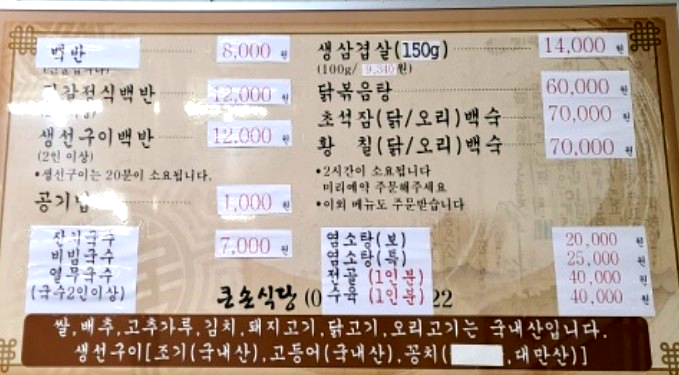 백반 8,000 원
정식백반 12,000 원
생선구이백반 12,000 원
(2인 이상)
•생선구이는 20분이 소요됩니다.
공기밥 1,000 원
잔치국수
비빔국수 7,000 원
열무국수
(국수2인이상)
생삼겹살(150g) 14,000 원
(100g/ 9,340원)
닭볶음탕 60,000 원
초석잠(닭/오리)백숙 70,000 원
황 칠(닭/오리)백숙 70,000 원
•2시간이 소요됩니다
미리예약 주문해주세요
•이외 메뉴도 주문받습니다
염소탕(보) 20,000 원
염소탕(특) 25,000 원
전골 (1인분) 40,000 원
수육 (1인분) 40,000 원
큰손식당 (0 22
쌀,배추,고추가루,김치,돼지고기,닭고기,오리고기는 국내산입니다.
생선구이[조기(국내산),고등어(국내산),꽁치( ,대만산)]